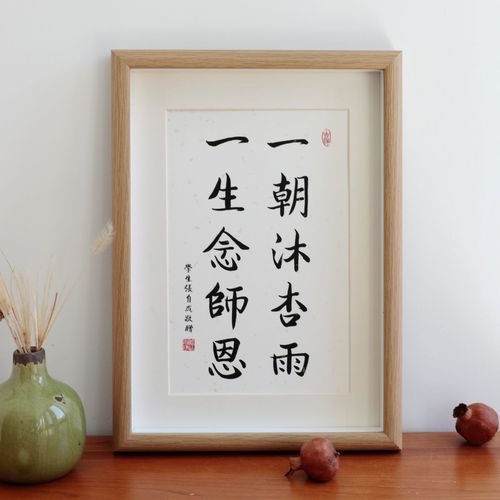 一朝沐杏雨
一生念師恩
學生張自成敬贈